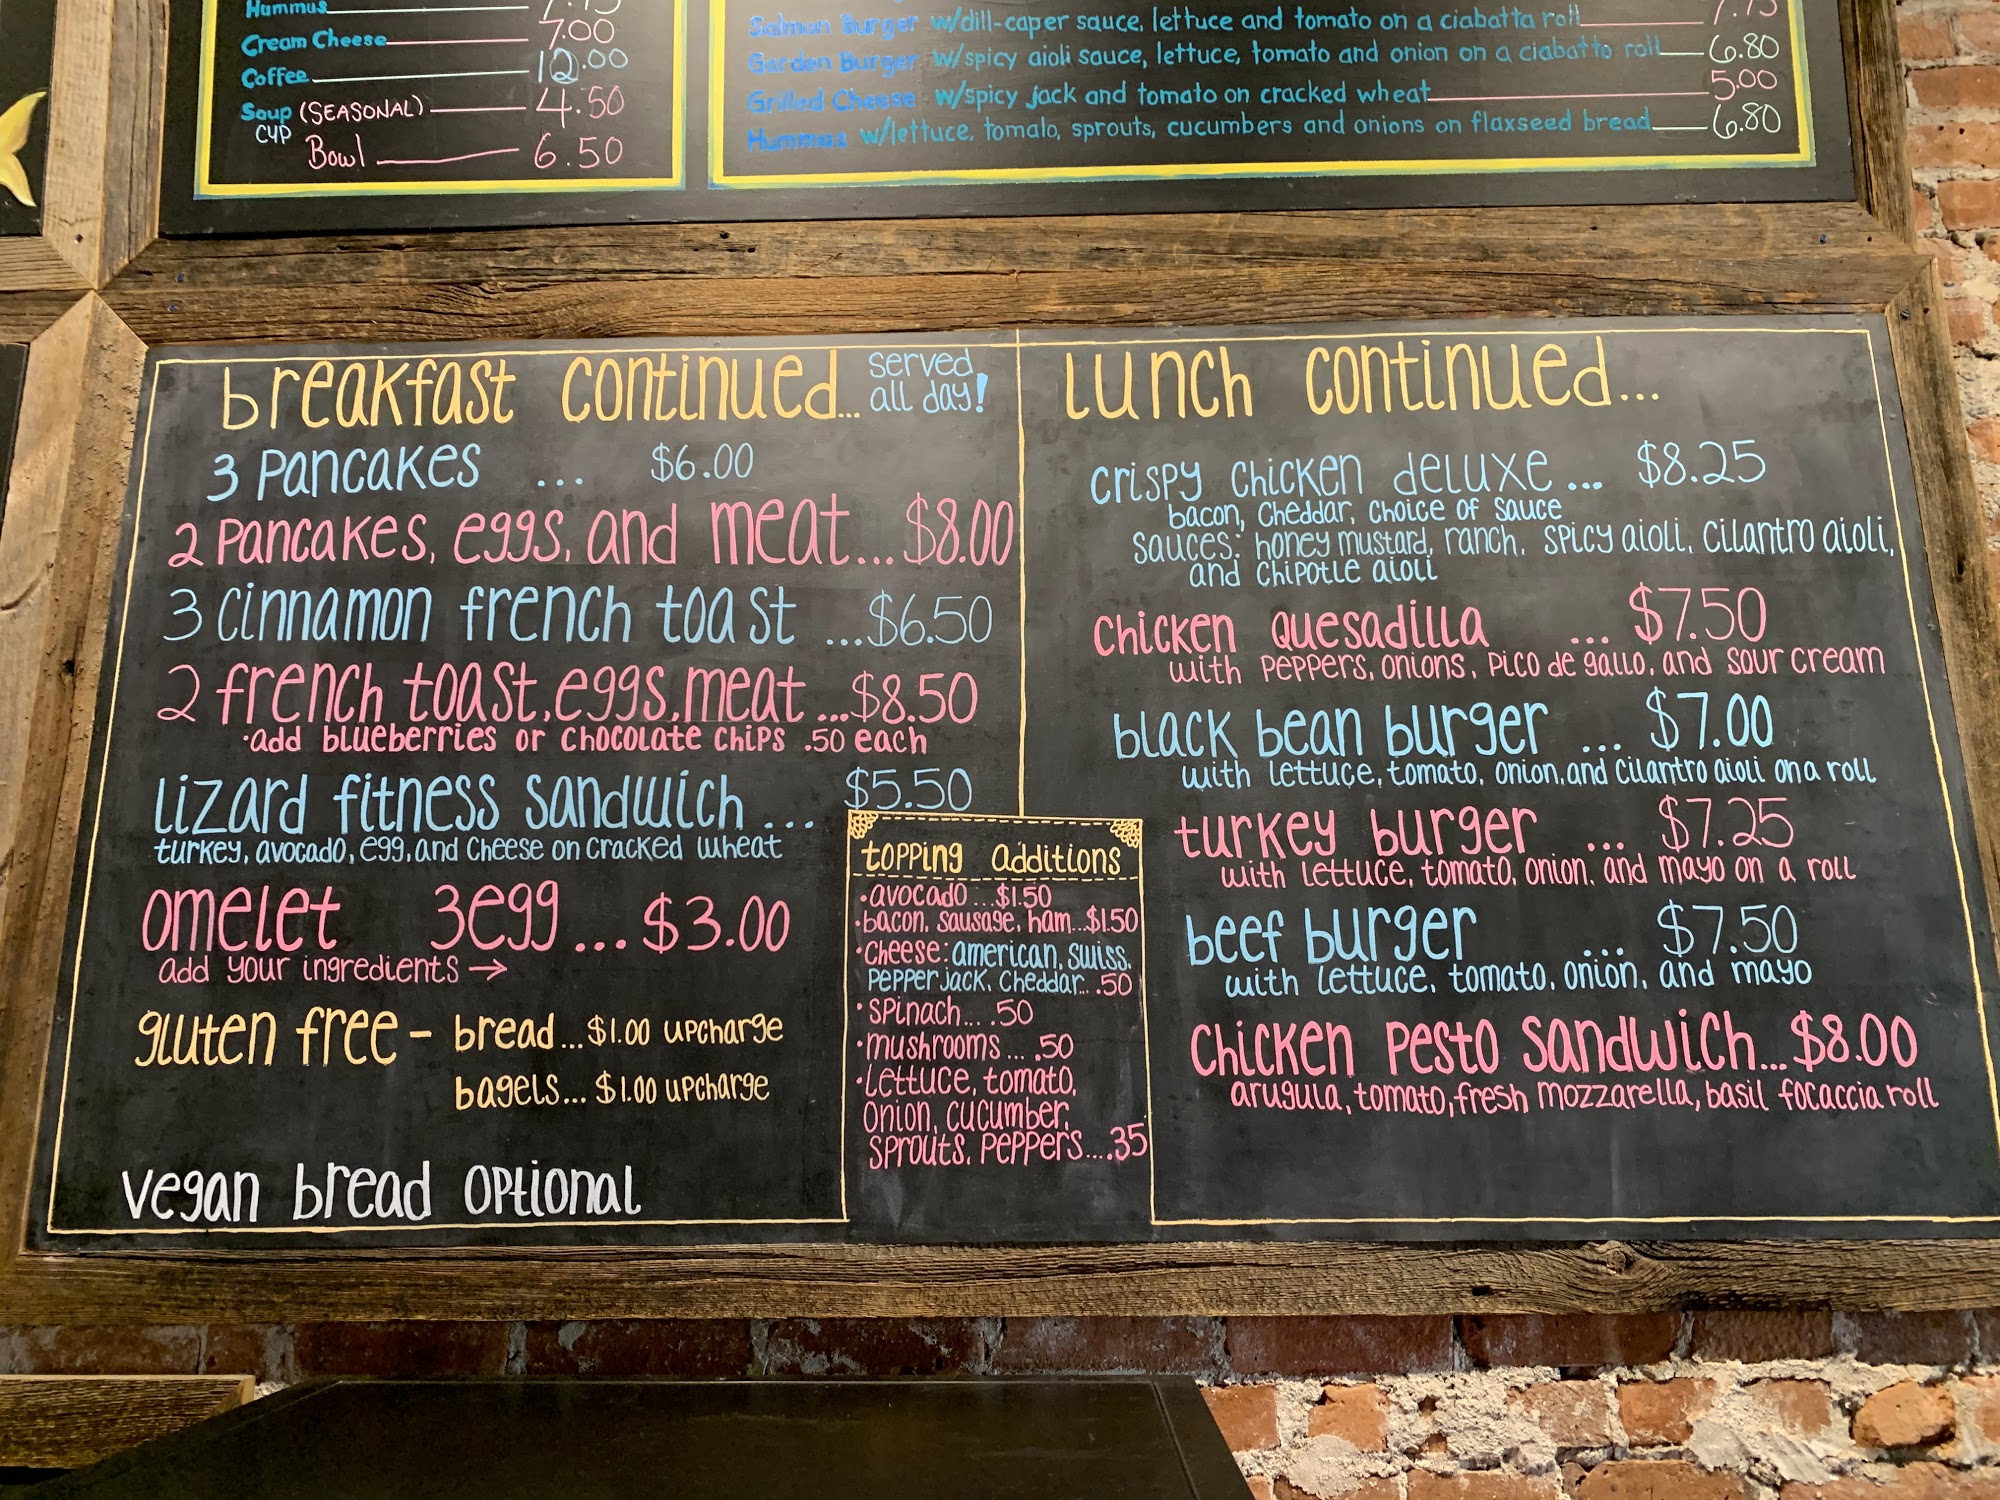 Hummus
Cream Cheese 7.00
Coffee 12.00
Soup (SEASONAL) 4.50
CUP
Bowl 6.50
Salmon Burger w/dill-caper sauce, lettuce and tomato on a ciabatta roll 7.75
Garden Burger w/spicy aioli sauce, lettuce, tomato and onion on a ciabatta roll 6.80
Grilled Cheese w/spicy jack and tomato on cracked wheat 5.00
Hummus w/lettuce, tomato, sprouts, cucumbers and onions on flaxseed bread 6.80
breakfast continued... served
all day!
3 pancakes ... $6.00
2 pancakes, eggs, and meat... $8.00
3 cinnamon french toast ...$6.50
2 french toast, eggs, meat ...$8.50
•add blueberries or chocolate chips .50 each
lizard fitness sandwich ... $5.50
turkey, avocado, egg, and cheese on cracked wheat
omelet 3egg ... $3.00
add your ingredients →
gluten free - bread ... $1.00 upcharge
bagels... $1.00 upcharge
vegan bread optional
topping additions
•avocado ...$1.50
•bacon, sausage, ham...$1.50
•cheese: american, swiss,
pepper jack, cheddar... .50
•spinach... .50
•mushrooms ... .50
•lettuce, tomato,
onion, cucumber,
sprouts, peppers....35
lunch continued...
crispy chicken deluxe ... $8.25
bacon, cheddar, choice of sauce
sauces: honey mustard, ranch, spicy aioli, cilantro aioli,
and chipotle aioli
chicken quesadilla ... $7.50
with peppers, onions, pico de gallo, and sour cream
black bean burger ... $7.00
with lettuce, tomato, onion, and cilantro aioli on a roll
turkey burger ... $7.25
with lettuce, tomato, onion, and mayo on a roll
beef burger ... $7.50
with lettuce, tomato, onion, and mayo
chicken pesto sandwich... $8.00
arugula, tomato, fresh mozzarella, basil focaccia roll